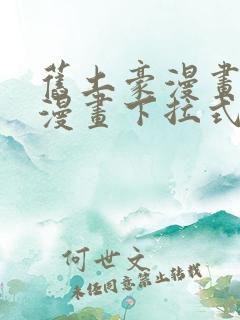 舊土豪漫畫
漫畫下拉式
何世文
未經同意禁止轉載